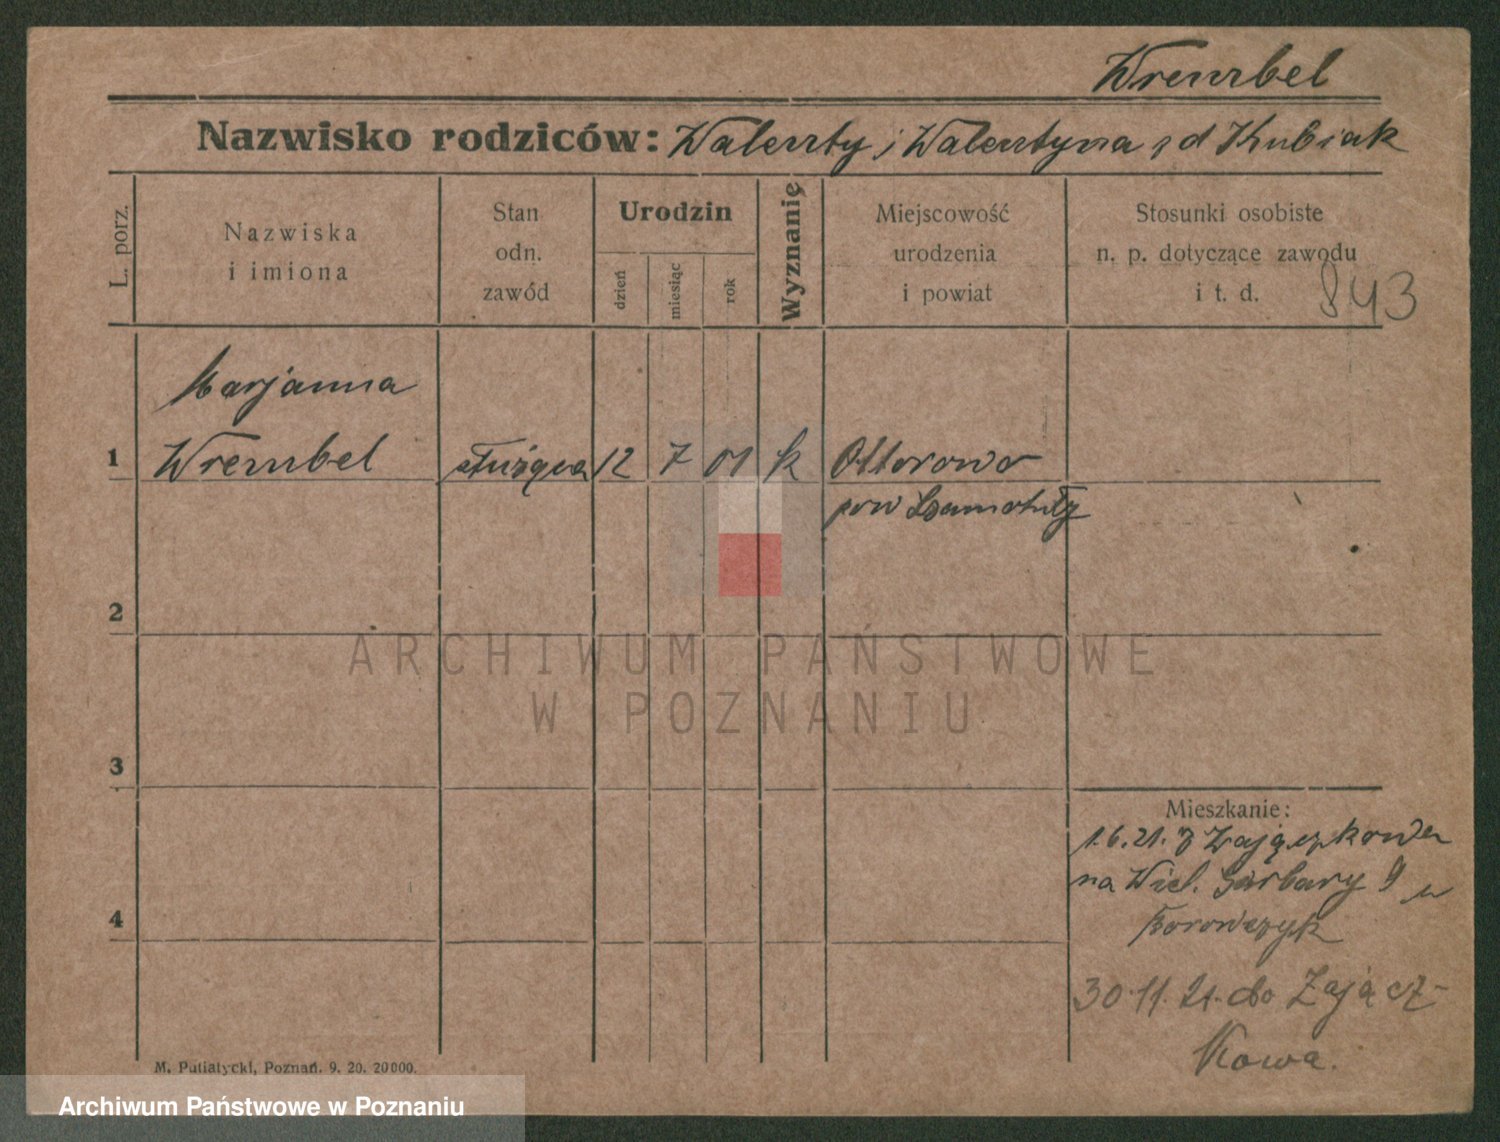 Wrembel
Nazwisko rodziców: Walenty i Walentyna z d Kubiak
L. porz.
Nazwiska
i imiona
Stan
odn.
zawód
Urodzin
dzień
miesiąc
rok
Wyznanię
Miejscowość
urodzenia
i powiat
Stosunki osobiste
n. p. dotyczące zawodu
i t. d.
843
Marjanna
1 Wrembel służąca 12 7 01 k Ottorowo
pow Szamotuły
2
3
4
Mieszkanie:
1.6.21. z Zajączkowa
na Wiel. Garbary 9 u
Borowczyk
30.11.21. do Zającz-
Kowa.
M. Putiatycki, Poznań. 9. 20. 20000.
ARCHIWUM PAŃSTWOWE
W POZNANIU
Archiwum Państwowe w Poznaniu